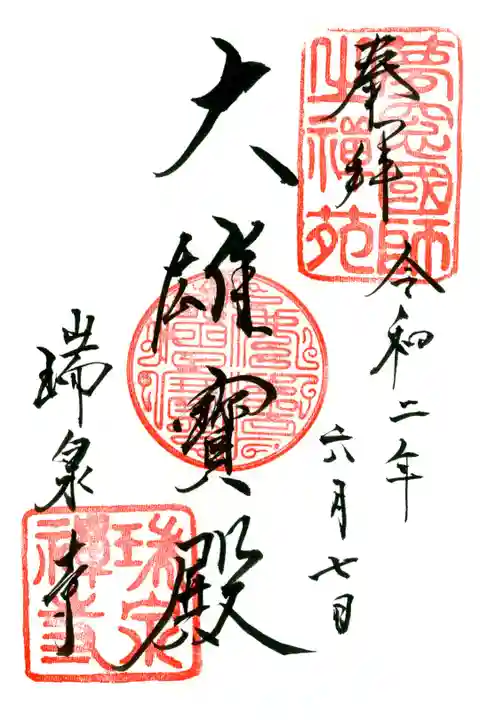 奉拝
令和二年
六月七日
大雄寳殿
瑞泉寺
夢窓國師
之禅苑
瑞泉
禅寺